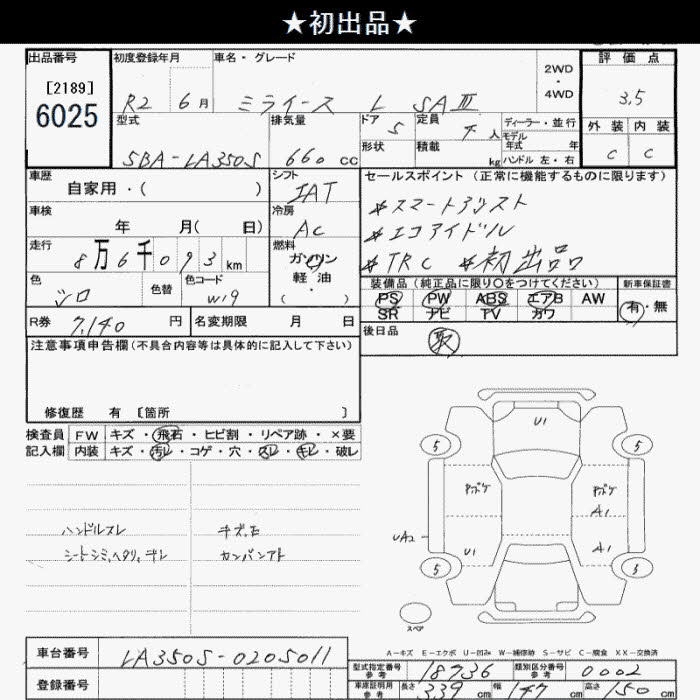 ★初出品★
出品番号
[2189]
6025
初度登録年月
R2 6月
車名・グレード
ミライース L SAⅢ
2WD
・
4WD
評価点
3.5
外装 内装
C C
型式
5BA-LA350S
排気量
660 cc
ドア
5
形状
定員
4人
積載
kg
ディーラー・並行
モデル
年式 年
ハンドル 左・右
車歴
自家用・( )
車検
年 月( 日)
走行
8万6千093km
色
シロ
色替
色コード
W19
シフト
IAT
冷房
AC
燃料
ガソリン
軽油
( ・ )
セールスポイント(正常に機能するものに限ります)
*スマートアシスト
*エコアイドル
*TRC *初出品
装備品(純正品に限り○をつけてください)
PS PW ABS エアB AW
SR ナビ TV カワ
新車保証書
有・無
後日品
取
R券 7,140円
名変期限 月 日
注意事項申告欄(不具合内容等は具体的に記入して下さい)
修復歴 有 [箇所 ]
検査員
記入欄
FW キズ・飛石・ヒビ割・リペア跡・×要
内装 キズ・汚レ・コゲ・穴・スレ・キレ・破レ
ハンドルスレ
シートシミ,ヘタリ,キレ
キズ,E
カンバンアト
U1
5 5
ヤボケ ヤボケ
A1
UA2
U1 A1
5 5
スペア
A-キズ E-エクボ U-凹2x W-補修跡 S-サビ C-腐食 XX-交換済
車台番号
LA350S-0205011
登録番号
型式指定番号
参考
18736
類別区分番号
参考
0002
車庫証明用
参考
長さ 339cm 幅 147cm 高さ 150cm